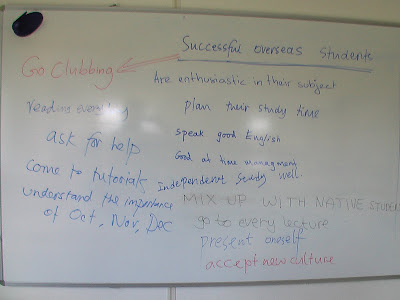 Successful overseas students
Go Clubbing
Are enthusiastic in their subject
reading everyday
plan their study time
ask for help
speak good English
Good at time managment
Come to tutorials
Independent study well.
understand the importance
of Oct, Nov, Dec
MIX UP WITH NATIVE STUDEN
go to every lecture
present oneself
accept new culture